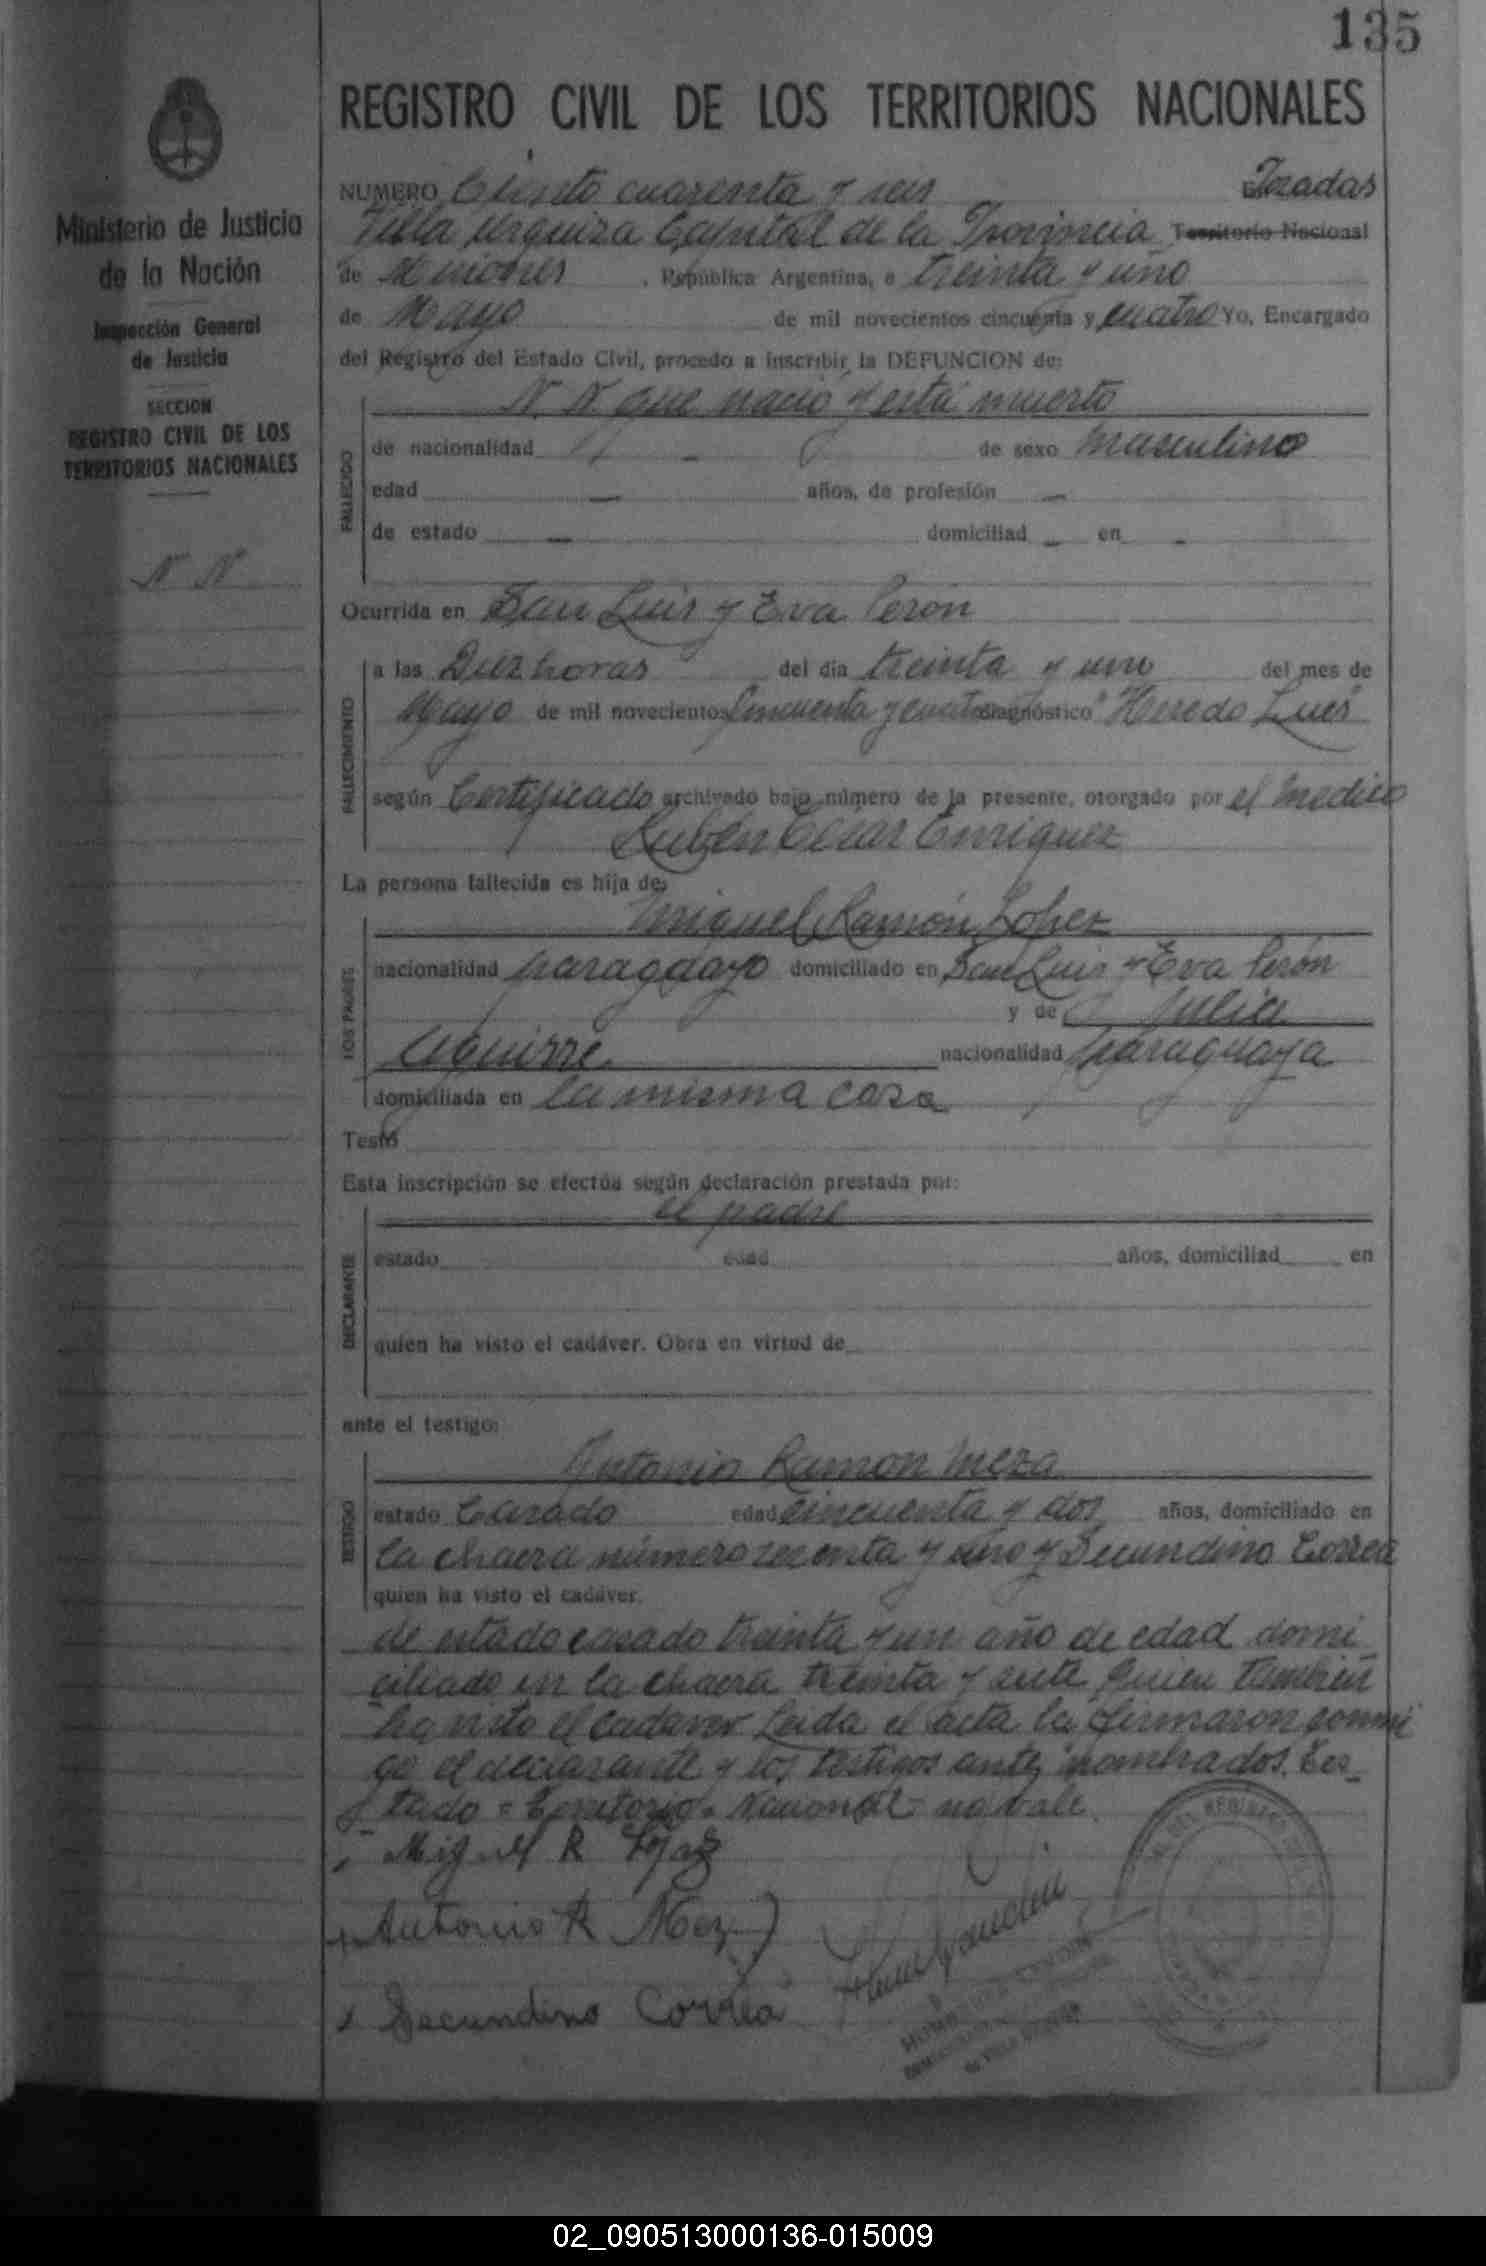 135
REGISTRO CIVIL DE LOS TERRITORIOS NACIONALES
Ministerio de Justicia
de la Nación
Inspección General
de Justicia
SECCION
REGISTRO CIVIL DE LOS
TERRITORIOS NACIONALES
N N
NUMERO Ciento cuarenta y seis Pozadas
Villa Urquiza Capital de la Provincia Territorio Nacional
de Misiones, República Argentina, a treinta y uno
de Mayo de mil novecientos cincuenta y cuatro Yo, Encargado
del Registro del Estado Civil, procedo a inscribir la DEFUNCION de:
N N que nació y está muerto
FALLECIDO
de nacionalidad - de sexo masculino
edad - años, de profesión -
de estado - domiciliad - en -
Ocurrida en San Luis y Eva Perón
FALLECIMIENTO
a las Diez horas del día treinta y uno del mes de
Mayo de mil novecientos cincuenta y cuatro diagnóstico "Heredo Lues"
según Certificado archivado bajo número de la presente, otorgado por el medico
Rubén César Enriquez
La persona fallecida es hija de:
Miguel Ramón Lopez
LOS PADRES
nacionalidad paraguayo domiciliado en San Luis y Eva Perón
y de Julia
Aguirre nacionalidad paraguaya
domiciliada en la misma casa
Testó
Esta inscripción se efectúa según declaración prestada por:
el padre
DECLARANTE
estado edad años, domiciliad en
quien ha visto el cadáver. Obra en virtud de
ante el testigo:
Antonio Ramon Meza
TESTIGO
estado Casado edad cincuenta y dos años, domiciliado en
la chacra número sesenta y uno y Secundino Correa
quien ha visto el cadáver.
de estado casado treinta y un año de edad domi
ciliado en la chacra treinta y siete quien también
ha visto el cadaver Leida el acta la firmaron conmi
go el declarante y los testigos ante nombrados. Tes_
tado = Territorio = Nacional - no vale.
Miguel R Lopez
Antonio R Meza
Secundino Correa
02_090513000136-015009